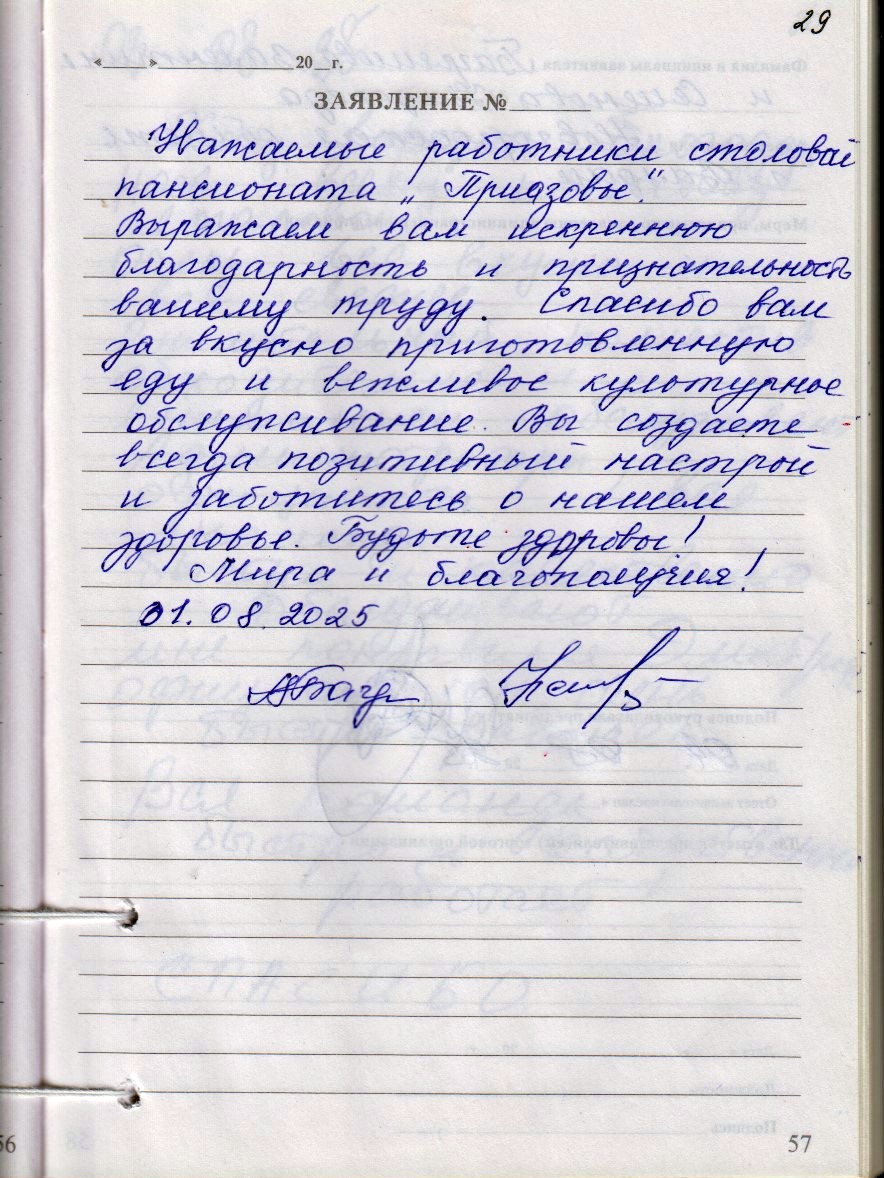 29
«____»______________20__г.
ЗАЯВЛЕНИЕ №________
Уважаемые работники столовой
пансионата „Приазовье".
Выражаем вам искреннюю
благодарность и признательность
вашему труду. Спасибо вам
за вкусно приготовленную
еду и вежливое культурное
обслуживание. Вы создаете
всегда позитивный настрой
и заботитесь о нашем
здоровье. Будьте здоровы!
Мира и благополучия!
01.08.2025
СПАСИБО
56
57